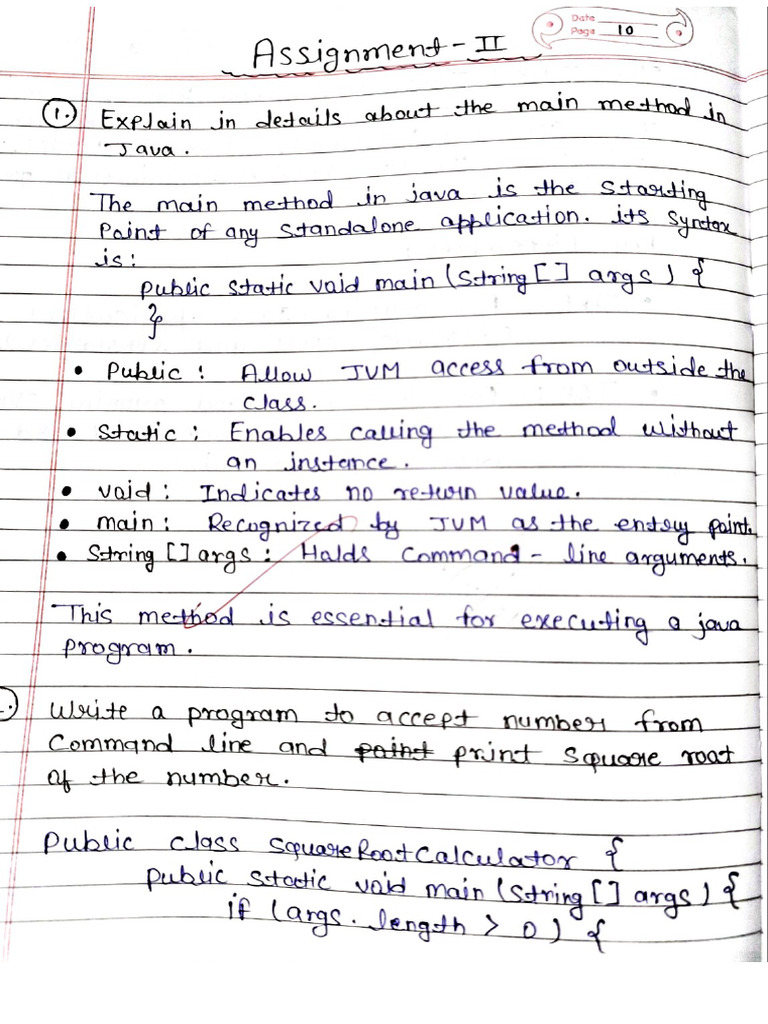 Date
Page 10
Assignment - II
1. Explain in details about the main method in
Java.
The main method in java is the starting
Point of any standalone application. its syntax
is:
public static void main (String [] args) {
}
• Public : Allow JVM access from outside the
class.
• Static : Enables calling the method without
an instance.
• void : Indicates no return value.
• main : Recognized by JVM as the entry point.
• String [] args : Holds Command - line arguments.
This method is essential for executing a java
program.
2. Write a program to accept number from
Command line and point print square root
of the number.
Public class SquareRootCalculator {
public static void main (String [] args) {
if (args. length > 0) {